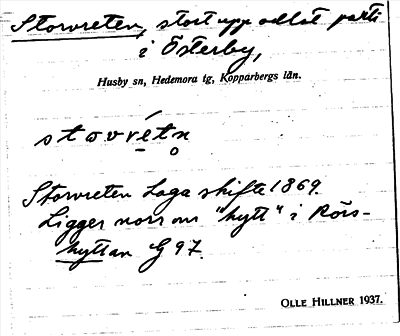 Storvreten, stort uppodlat parti
i Österby,
Husby sn, Hedemora tg, Kopparbergs län.
stọvrétn̥
Storvreten Laga skifte 1869.
Ligger norr om "hytt" i Rörs-
hyttan G 97.
OLLE HILLNER 1937.